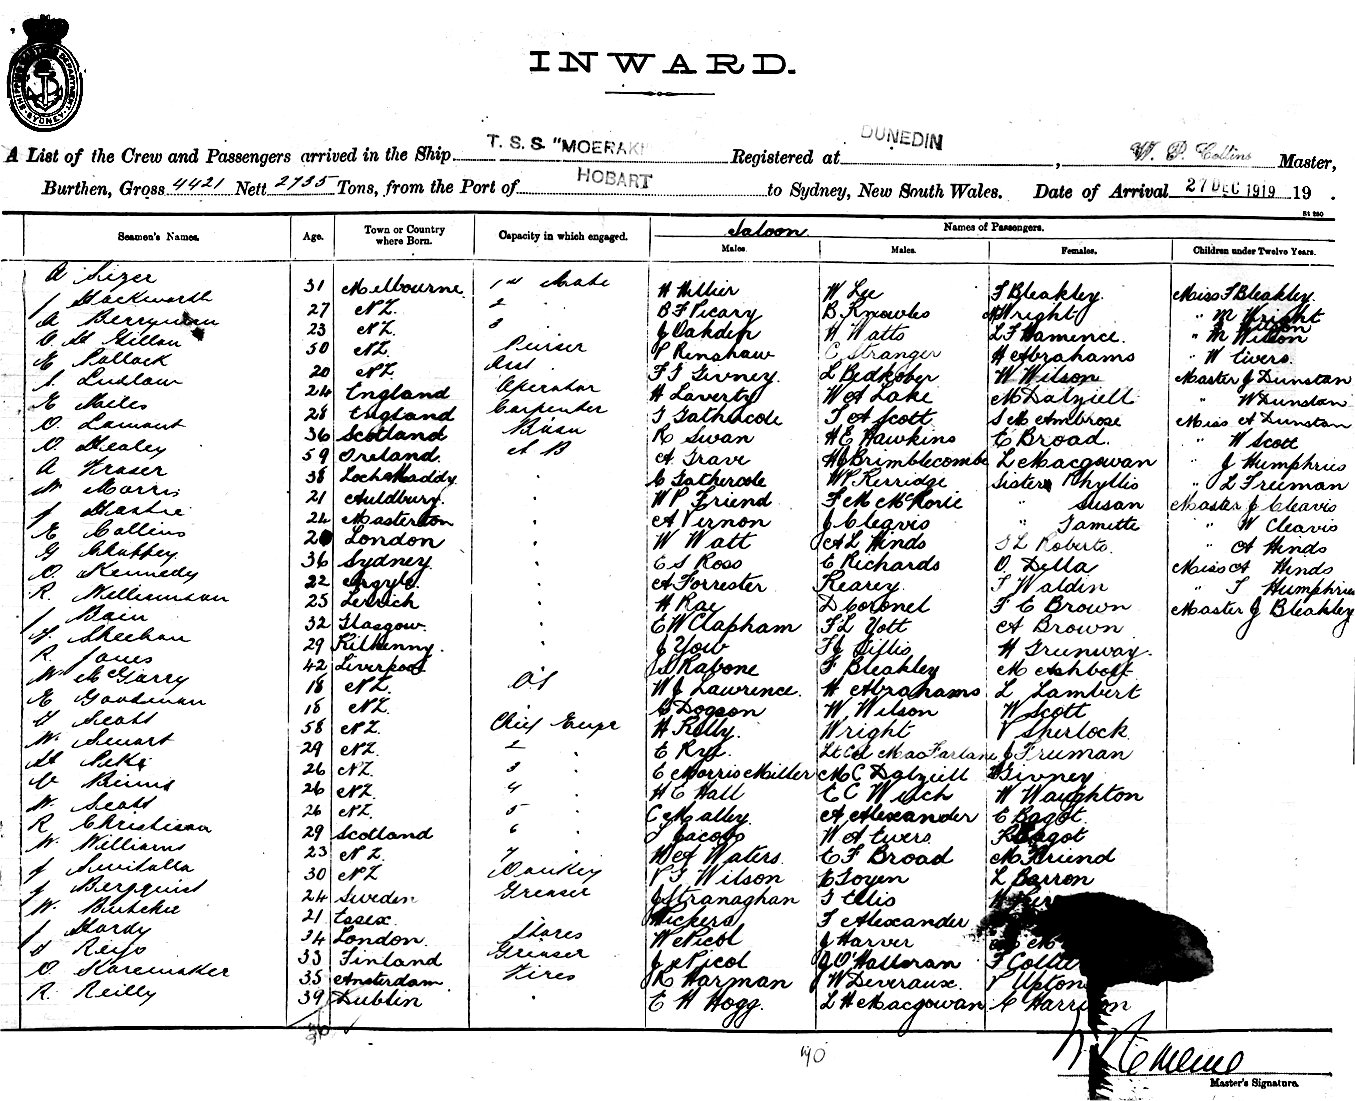 SHIPPING MASTER'S DEPARTMENT SYDNEY
INWARD.
A List of the Crew and Passengers arrived in the Ship T. S. S. "MOERAKI" Registered at DUNEDIN, W. P. Collins Master,
Burthen, Gross 4421 Nett 2735 Tons, from the Port of HOBART to Sydney, New South Wales. Date of Arrival 27 DEC 1919 19 .
Seamen's Names. Age. Town or Country where Born. Capacity in which engaged. Saloon Names of Passengers.
Males. Males. Females. Children under Twelve Years.
A Sizer 31 Melbourne 1st Mate H Hillier W Lee F Bleakley Miss F Bleakley
J Hackworth 27 NZ 2 " B F Vicary B Knowles Wright " M Wright
A Berryman 23 NZ 3 " J Oakden H Watts L F Hamence " M Wilson
C St Gillon 50 NZ Purser P Renshaw C Stranger H Abrahams " W Ewers
E Pollock 20 NZ Asst F J Givney L Bedkober W Wilson Master J Dunstan
S Ludlow 24 England Operator H Laverty W A Lake M Dalziell " W Dunstan
E Miles 28 England Carpenter T Gathercole T A Scott S M Ambrose Miss A Dunstan
O Lamont 36 Scotland Bosun R Swan H E Hawkins E Broad " W Scott
O Healey 59 Ireland A B A Grave H J Brimblecombe L Macgowan " J Humphries
A Fraser 38 Loch Maddy " C Gathercole W P Kerridge Sister Phyllis " L Freeman
W Morris 21 Auldbury " W P Friend F M McRorie " Susan Master J Cleavis
J Hastie 24 Masterton " A Vernon J Cleavis " Jamette " W Cleavis
E Collins 2 London " W Watt A L Hinds F L Roberts " A Hinds
G Chaffey 36 Sydney " E S Ross E Richards O Della Miss A Hinds
O Kennedy 22 Argyle " A Forrester Kearey F Waldin " T Humphries
R Williamson 25 Lerrich " H Rae D Coronel F E Brown Master J Bleakley
J Bain 32 Glasgow " E W Clapham F L Yott A Brown
T Sheehan 29 Kilkenny " J Yow F J Gillis H Grunway
R Jones 42 Liverpool " J S Rabone F Bleakley M Ashbolt
W McGarry 18 NZ O S W J Lawrence H Abrahams L Lambert
E Goodman 18 NZ " C Dogson W Wilson W Scott
G Scott 58 NZ Chief Engr H Kelly Wright V Sherlock
W Stuart 29 NZ 2 " E Rye Lt Col MacFarlane J Truman
26 NZ 3 " E Morris Miller M C Dalziell Givney
C Binns 26 NZ 4 " H E Hall E C Witch W Waughton
W Scott 26 NZ 5 " C Malley A Alexander E Bagot
R Christison 29 Scotland 6 " J Jacobs W A Ewers R Bagot
W Williams 23 NZ 7 " W A Waters E F Broad M Friend
J Smitalla 30 NZ Donkey V G Wilson E Foyen L Barron
J Bergquist 24 Sweden Greaser J Stranaghan T Ellis
W Butcher 21 Essex " Vickers F Alexander
J Hardy 34 London Stores W Nicol J Harver
G Reijo 33 Finland Greaser J Nicol J O'Halloran F Collie
O Storemaker 35 Amsterdam Fires R Harman W Deveraux V Upton
R Reilly 39 Dublin " E H Hogg L H Macgowan C Harrison
36 ✓
90
Master's Signature.